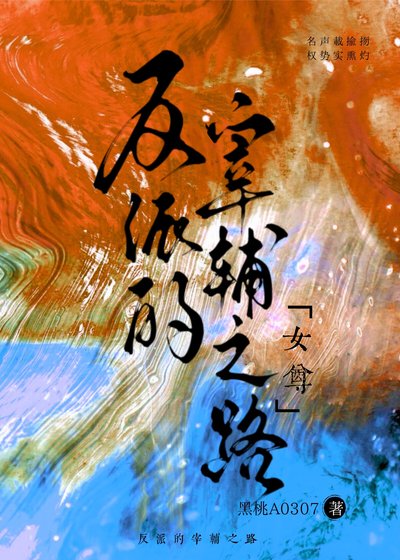 名声載揄揚
权势实熏灼
反派的
宰輔之路
「女尊」
黑桃A0307 著
反派的宰輔之路